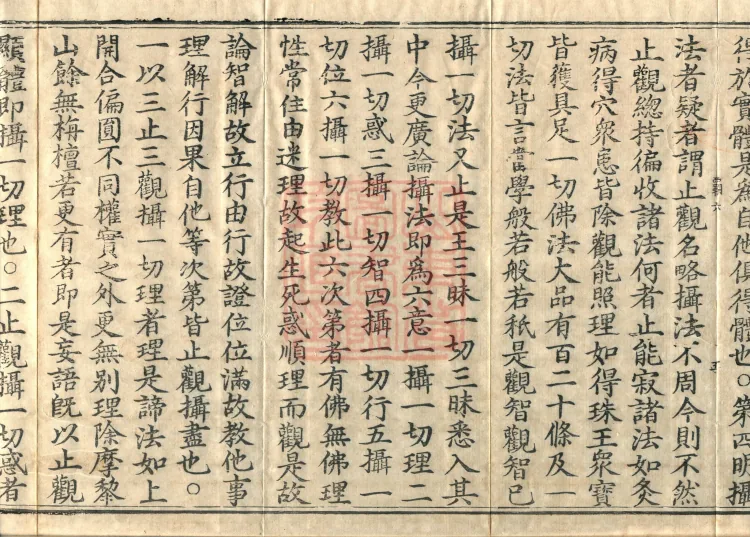 得於實體是爲自他俱得體也○第四明攝
六
五
法者疑者謂止觀名略攝法不周今則不然
止觀總持徧收諸法何者止能寂諸法如灸
病得穴衆患皆除觀能照理如得珠王衆寶
皆獲具足一切佛法大品有百二十條及一
切法皆言當學般若般若秖是觀智觀智已
攝一切法又止是王三昧一切三昧悉入其
中今更廣論攝法即爲六意一攝一切理二
攝一切惑三攝一切智四攝一切行五攝一
切位六攝一切教此六次第者有佛無佛理
性常住由迷理故起生死惑順理而觀是故
論智解故立行由行故證位位滿故教他事
理解行因果自他等次第皆止觀攝盡也○
一以三止三觀攝一切理者理是諦法如上
開合偏圓不同權實之外更無別理除摩黎
山餘無栴檀若更有者即是妄語旣以止觀
顯體即攝一切理也○二止觀攝一切惑者